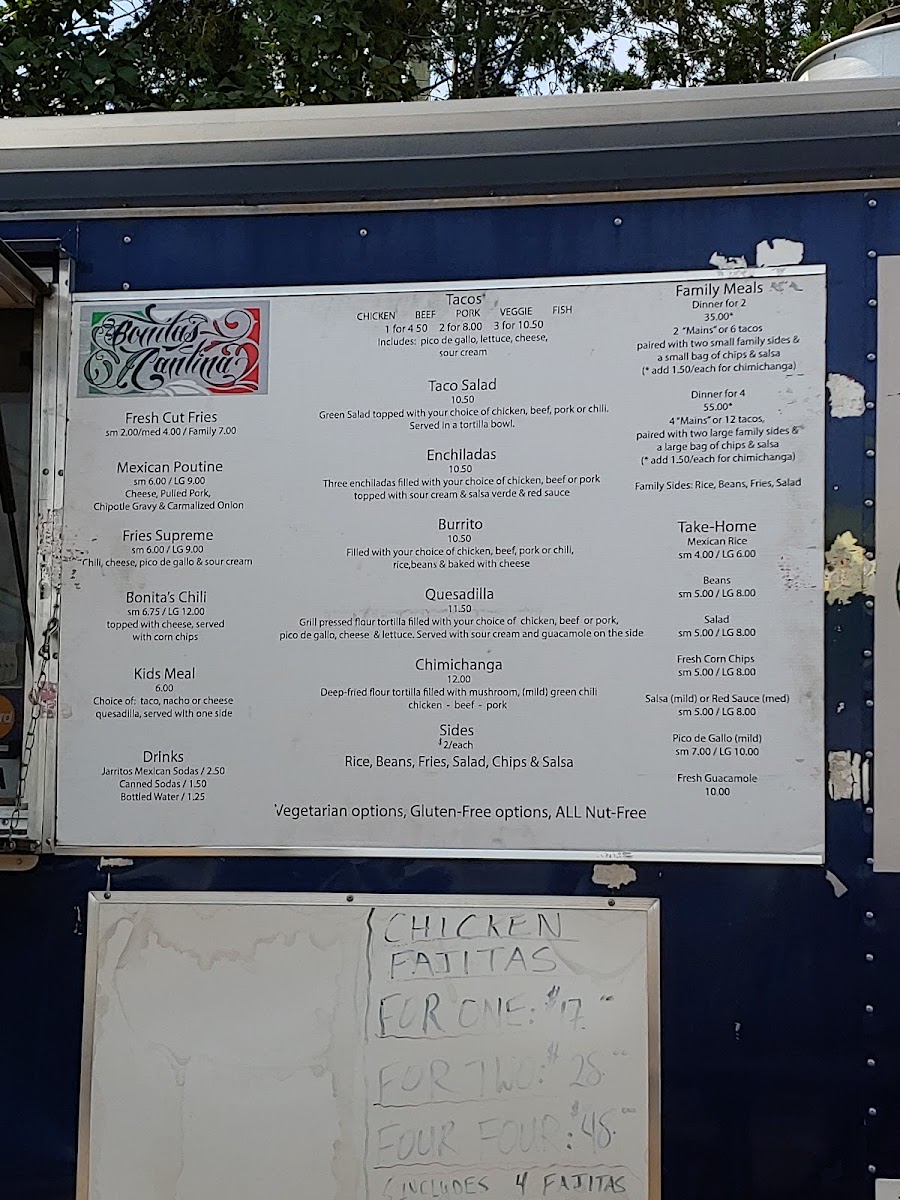 Bonitas
Cantina
Fresh Cut Fries
sm 2.00/med 4.00 / Family 7.00
Mexican Poutine
sm 6.00 / LG 9.00
Cheese, Pulled Pork,
Chipotle Gravy & Carmalized Onion
Fries Supreme
sm 6.00 / LG 9.00
Chili, cheese, pico de gallo & sour cream
Bonita's Chili
sm 6.75 / LG 12.00
topped with cheese, served
with corn chips
Kids Meal
6.00
Choice of: taco, nacho or cheese
quesadilla, served with one side
Drinks
Jarritos Mexican Sodas / 2.50
Canned Sodas / 1.50
Bottled Water / 1.25
Tacos
CHICKEN BEEF PORK VEGGIE FISH
1 for 4 50 2 for 8.00 3 for 10.50
Includes: pico de gallo, lettuce, cheese,
sour cream
Taco Salad
10.50
Green Salad topped with your choice of chicken, beef, pork or chili.
Served in a tortilla bowl.
Enchiladas
10.50
Three enchiladas filled with your choice of chicken, beef or pork
topped with sour cream & salsa verde & red sauce
Burrito
10.50
Filled with your choice of chicken, beef, pork or chili,
rice,beans & baked with cheese
Quesadilla
11.50
Grill pressed flour tortilla filled with your choice of chicken, beef or pork,
pico de gallo, cheese & lettuce. Served with sour cream and guacamole on the side
Chimichanga
12.00
Deep-fried flour tortilla filled with mushroom, (mild) green chili
chicken - beef - pork
Sides
$2/each
Rice, Beans, Fries, Salad, Chips & Salsa
Family Meals
Dinner for 2
35.00*
2 "Mains" or 6 tacos
paired with two small family sides &
a small bag of chips & salsa
(* add 1.50/each for chimichanga)
Dinner for 4
55.00*
4 "Mains" or 12 tacos,
paired with two large family sides &
a large bag of chips & salsa
(* add 1.50/each for chimichanga)
Family Sides: Rice, Beans, Fries, Salad
Take-Home
Mexican Rice
sm 4.00 / LG 6.00
Beans
sm 5.00 / LG 8.00
Salad
sm 5.00 / LG 8.00
Fresh Corn Chips
sm 5.00 / LG 8.00
Salsa (mild) or Red Sauce (med)
sm 5.00 / LG 8.00
Pico de Gallo (mild)
sm 7.00 / LG 10.00
Fresh Guacamole
10.00
Vegetarian options, Gluten-Free options, ALL Nut-Free
CHICKEN
FAJITAS
FOR ONE: $17.
FOR TWO: $28.
FOUR FOUR: $48.
INCLUDES 4 FAJITAS